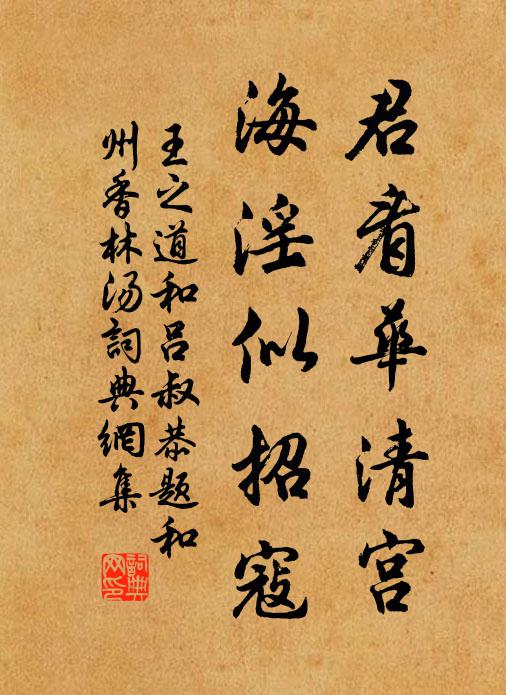 君看華清宫
海淫似招寇
王之道和吕叔恭题和
州香林汤詞典網集
詞典
网印